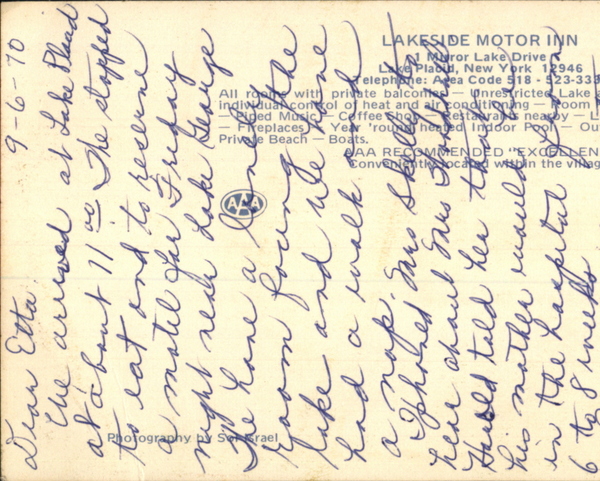 LAKESIDE MOTOR INN
1 Mirror Lake Drive
Lake Placid, New York 12946
Telephone: Area Code 518 - 523-333
All rooms with private balconies — Unrestricted Lake
individual control of heat and air conditioning — Room
— Piped Music — Coffee Shop — Restaurants nearby — L
— Fireplaces — Year 'round heated Indoor Pool — Ou
Private Beach — Boats.
AAA RECOMMENDED "EXCELLEN
Conveniently located within the villag
AAA
Photography by Sol Israel
9-6-70
Dear Etta
We arrived at Lake Placid
at about 11 00 We stopped
to eat and to reserve
a motel for Friday
night near Lake George
We have a lovely
room facing the
lake and we have
had a walk and
a nap. Mrs
I phoned Mrs
hear about Mrs
Harold told her that
his mother would be
in the hospital from
6 to 8 weeks